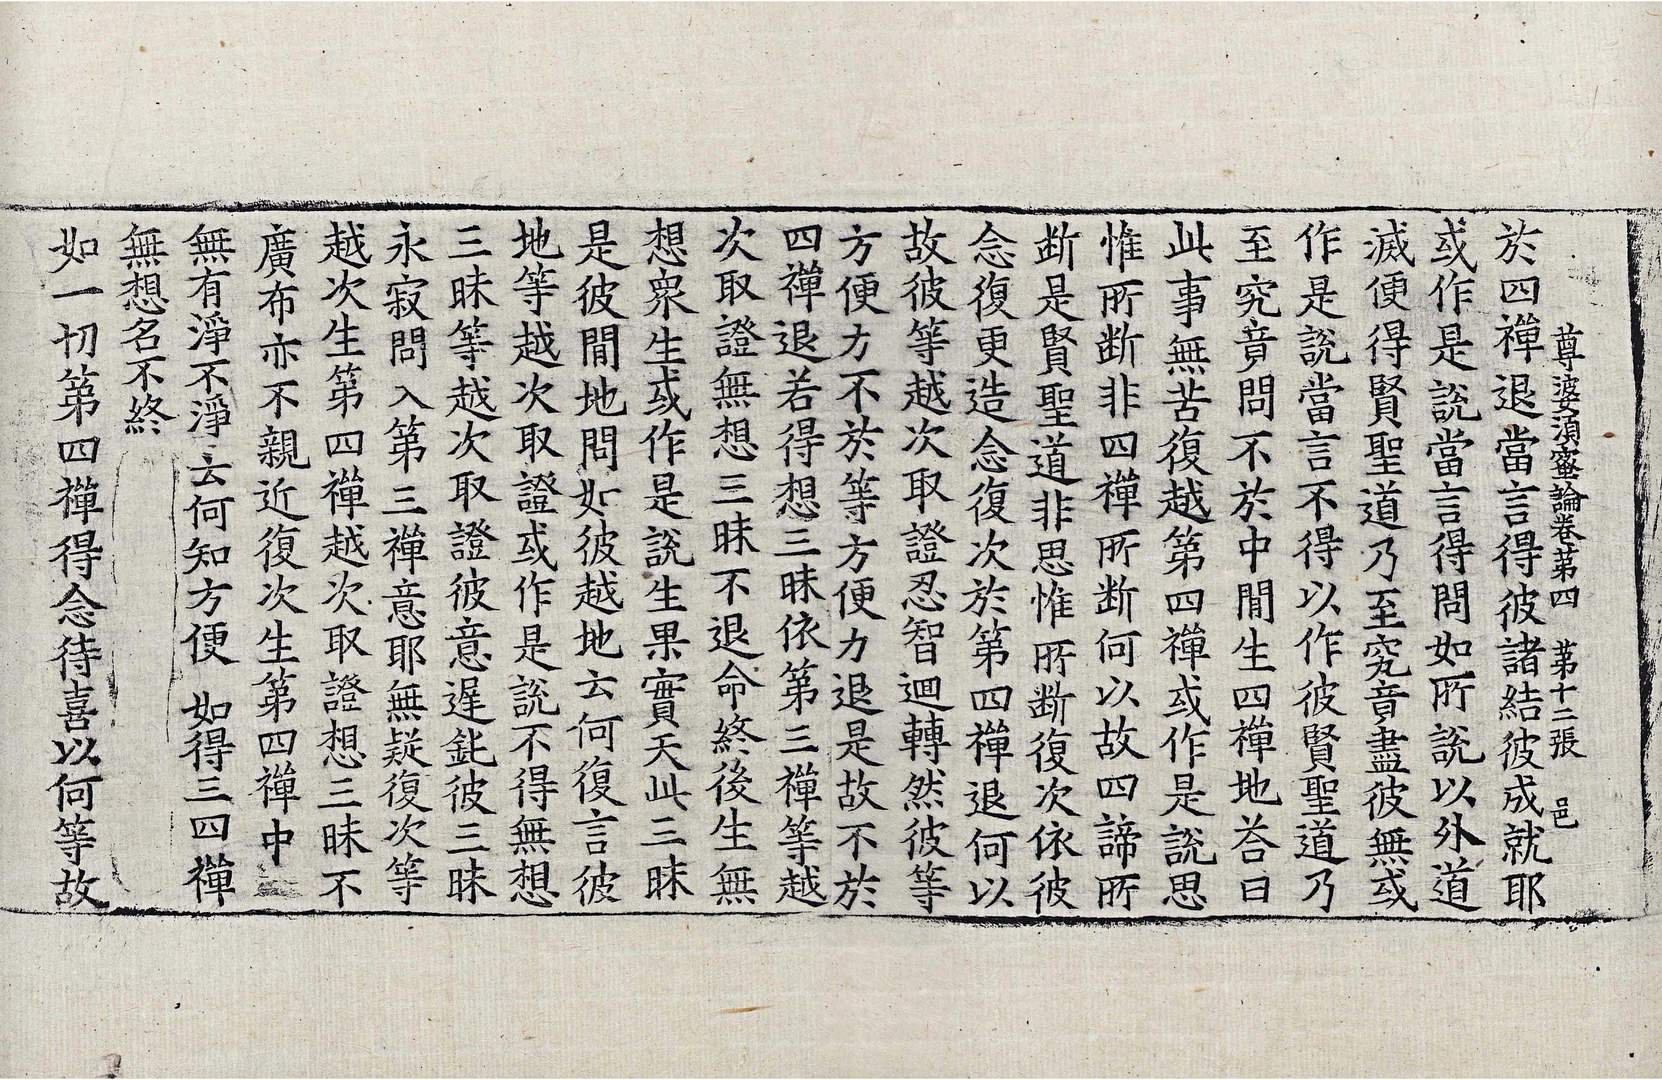 尊婆須蜜論卷第四　第十二張　邑
於四禪退當言得彼諸結彼成就耶
或作是說當言得問如所說以外道
滅便得賢聖道乃至究竟盡彼無或
作是說當言不得以作彼賢聖道乃
至究竟問不於中閒生四禪地荅曰
此事無苦復越第四禪或作是說思
惟所断非四禪所断何以故四諦所
断是賢聖道非思惟所断復次依彼
念復更造念復次於第四禪退何以
故彼等越次取證忍智迴轉然彼等
方便力不於等方便力退是故不於
四禪退若得想三昧依第三禪等越
次取證無想三昧不退命終後生無
想衆生或作是說生果實天此三昧
是彼閒地問如彼越地云何復言彼
地等越次取證或作是說不得無想
三昧等越次取證彼意遲鈍彼三昧
永寂問入第三禪意耶無疑復次等
越次生第四禪越次取證想三昧不
廣布亦不親近復次生第四禪中
無有淨不淨云何知方便　如得三四禪
無想名不終
如一切第四禪得念待喜以何等故